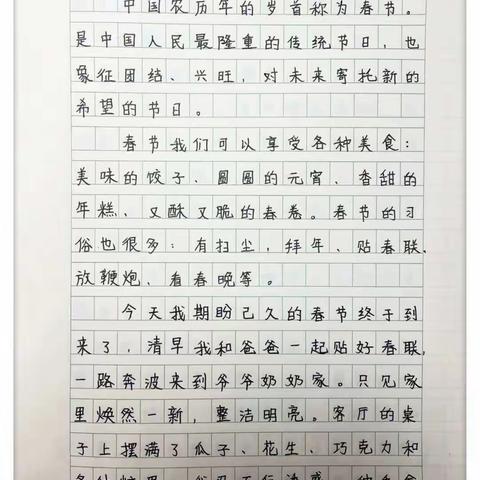 中国农历年的岁首称为春节。
是中国人民最隆重的传统节日，也
象征团结、兴旺，对未来寄托新的
希望的节日。
春节我们可以享受各种美食：
美味的饺子、圆圆的元宵、香甜的
年糕、又酥又脆的春卷。春节的习
俗也很多：有扫尘，拜年、贴春联、
放鞭炮、看春晚等。
今天我期盼已久的春节终于到
来了，清早我和爸爸一起贴好春联，
一路奔波来到爷爷奶奶家。只见家
里焕然一新，整洁明亮。客厅的桌
子上摆满了瓜子、花生、巧克力和